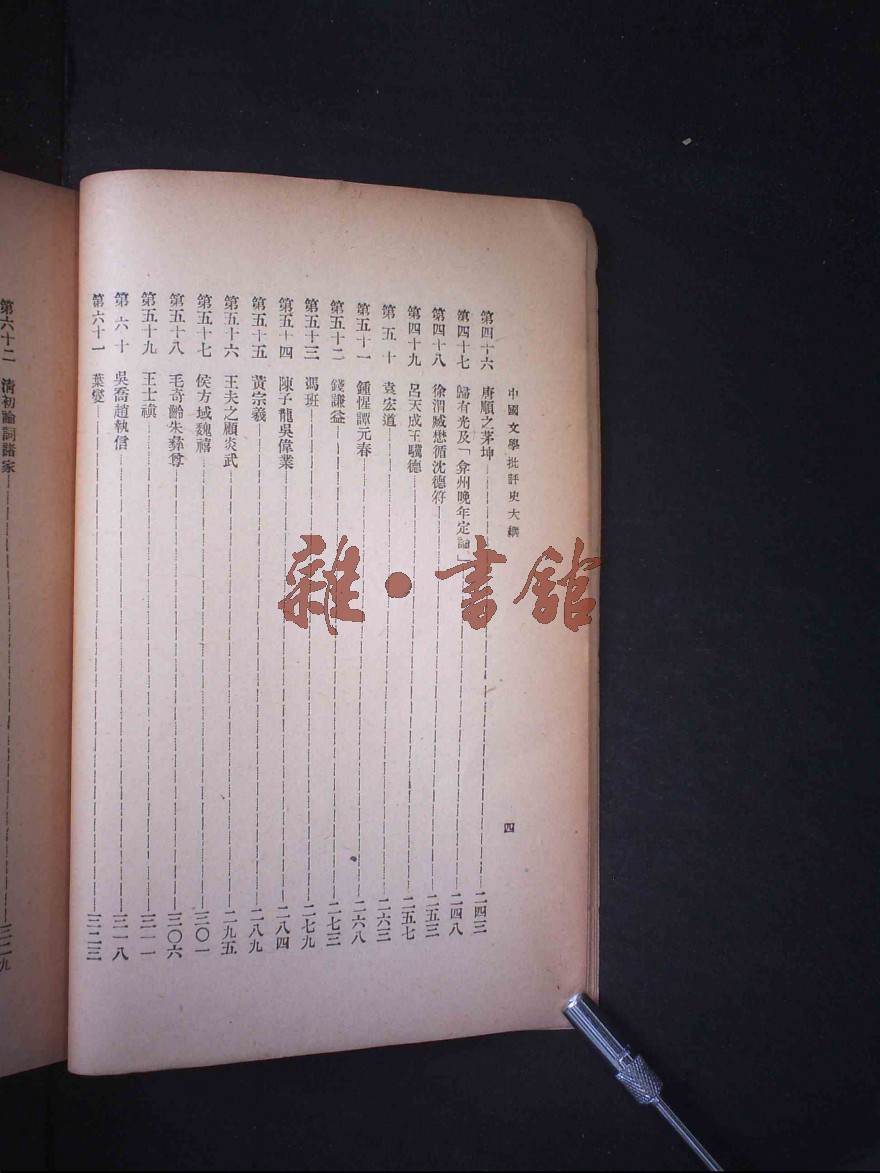 中國文學批評史大綱
四
第四十六 唐順之茅坤 二四三
第四十七 歸有光及「弇州晚年定論」 二四八
第四十八 徐渭臧懋循沈德符 二五三
第四十九 呂天成王驥德 二五七
第五十 袁宏道 二六三
第五十一 鍾惺譚元春 二六八
第五十二 錢謙益 二七三
第五十三 馮班 二七九
第五十四 陳子龍吳偉業 二八四
第五十五 黃宗羲 二八九
第五十六 王夫之顧炎武 二九五
第五十七 侯方域魏禧 三〇一
第五十八 毛奇齡朱彝尊 三〇六
第五十九 王士禛 三一一
第六十 吳喬趙執信 三一八
第六十一 葉燮 三二三
第六十二 清初論詞諸家 三二九
雜·書館